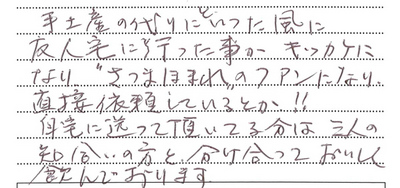 手土産の代りにといった風に
友人宅に行った事がキッカケに
なり"さつまほまれ"のファンになり、
直接依頼しているとか!!
自宅に送って頂いてる分は三人の
知合いの方と、分け合っておいしく
飲んでおります